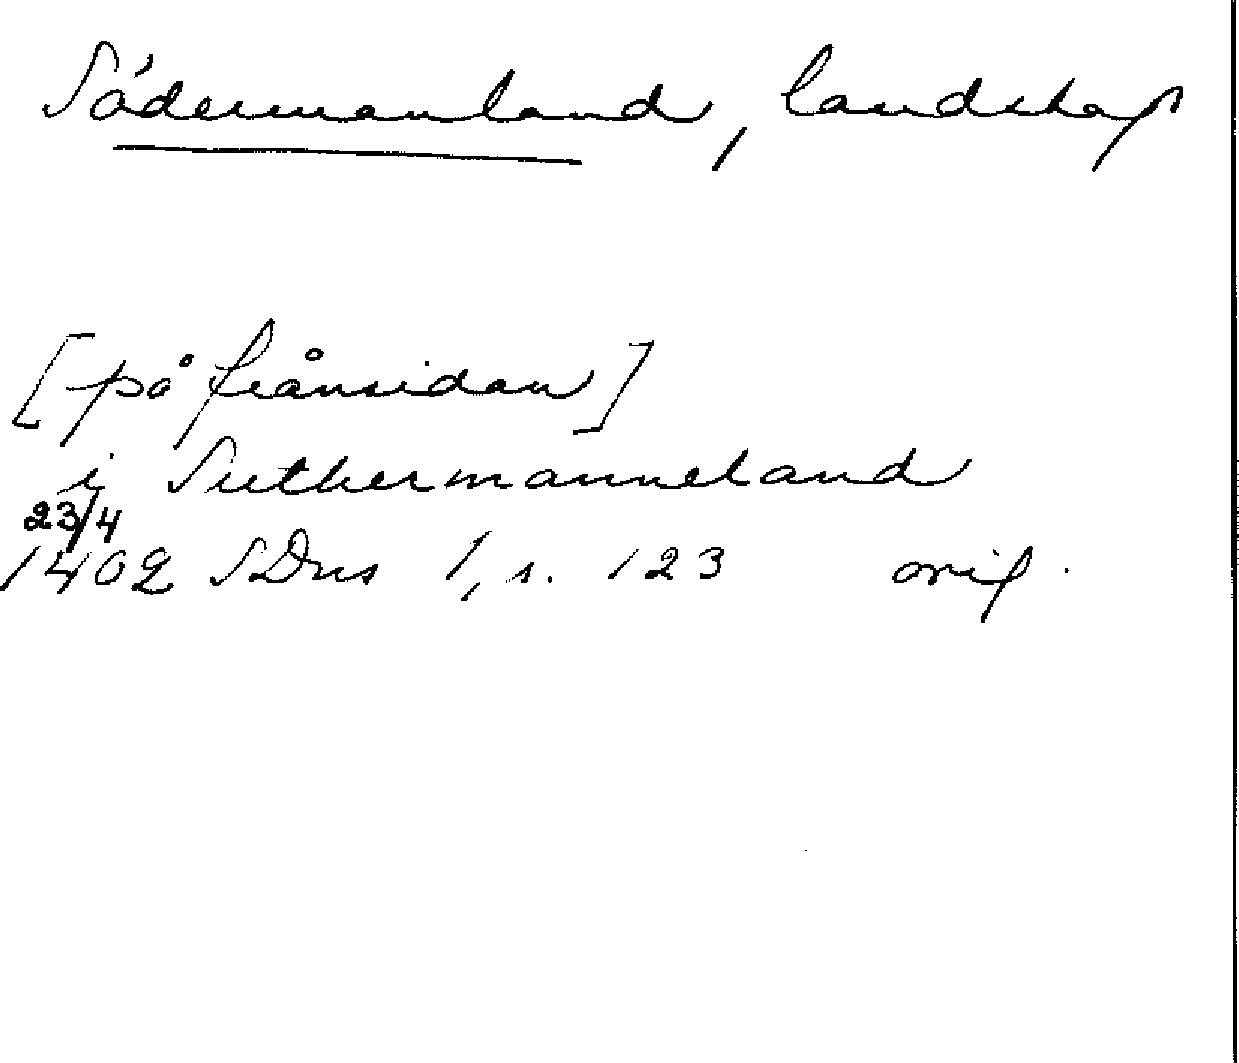 Södermanland, landskap
[på frånsidan]
i Suthermanneland
23/4
1402 SDns 1, s. 123 orig.